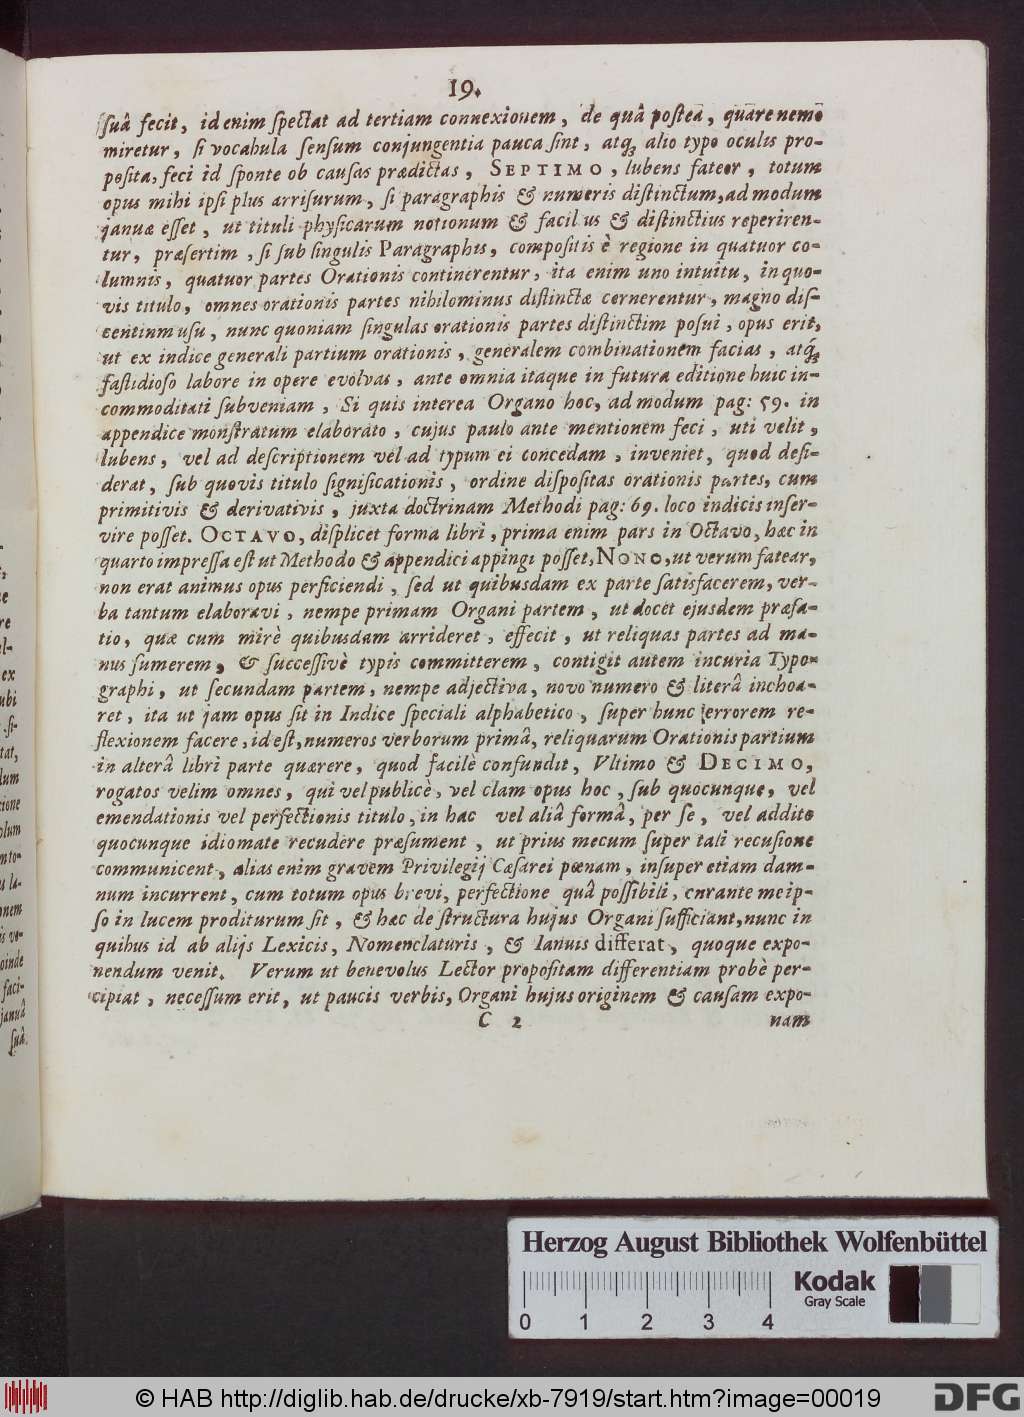 19.
ſſuâ fecit, id enim ſpectat ad tertiam connexionem, de quâ poſtea, quare nemo
miretur, ſi vocabula ſenſum conjungentia pauca ſint, atq; alio typo oculis pro-
poſita, feci id ſponte ob cauſas prædictas, SEPTIMO, lubens fateor, totum
opus mihi ipſi plus arriſurum, ſi paragraphis & numeris diſtinctum, ad modum
januæ eſſet, ut tituli phyſicarum notionum & facil us & diſtinctius reperiren-
tur, præſertim, ſi ſub ſingulis Paragraphis, compoſitis è regione in quatuor co-
lumnis, quatuor partes Orationis continerentur, ita enim uno intuitu, in quo-
vis titulo, omnes orationis partes nihilominus diſtinctæ cernerentur, magno diſ-
centium uſu, nunc quoniam ſingulas orationis partes diſtinctim poſui, opus erit,
ut ex indice generali partium orationis, generalem combinationem facias, atq́;
faſtidioſo labore in opere evolvas, ante omnia itaque in futura editione huic in-
commoditati ſubveniam, Si quis interea Organo hoc, ad modum pag: 59. in
appendice monſtratum elaborato, cujus paulo ante mentionem feci, uti velit,
lubens, vel ad deſcriptionem vel ad typum ei concedam, inveniet, quod deſi-
derat, ſub quovis titulo ſignificationis, ordine diſpoſitas orationis partes, cum
primitivis & derivativis, juxta doctrinam Methodi pag: 69. loco indicis inſer-
vire poſſet. OCTAVO, diſplicet forma libri, prima enim pars in Octavo, hæc in
quarto impreſſa eſt ut Methodo & appendici appingi poſſet, NONO, ut verum fatear,
non erat animus opus perficiendi, ſed ut quibusdam ex parte ſatisfacerem, ver-
ba tantum elaboravi, nempe primam Organi partem, ut docet ejusdem præfa-
tio, quæ cum mirè quibusdam arrideret, effecit, ut reliquas partes ad ma-
nus ſumerem, & ſucceſſivè typis committerem, contigit autem incuria Typo-
graphi, ut ſecundam partem, nempe adjectiva, novo numero & literâ inchoa-
ret, ita ut jam opus ſit in Indice ſpeciali alphabetico, ſuper hunc errorem re-
flexionem facere, id eſt, numeros verborum primâ, reliquarum Orationis partium
in alterâ libri parte quærere, quod facilè confundit, Vltimo & DECIMO,
rogatos velim omnes, qui vel publicè, vel clam opus hoc, ſub quocunque, vel
emendationis vel perfectionis titulo, in hac vel aliâ formâ, per ſe, vel addito
quocunque idiomate recudere præſument, ut prius mecum ſuper tali recuſione
communicent, alias enim gravem Privilegij Cæſarei pœnam, inſuper etiam dam-
num incurrent, cum totum opus brevi, perfectione quâ poſſibili, curante meip-
ſo in lucem proditurum ſit, & hæc de ſtructura hujus Organi ſufficiant, nunc in
quibus id ab alijs Lexicis, Nomenclaturis, & Ianuis differat, quoque expo-
nendum venit. Verum ut benevolus Lector propoſitam differentiam probè per-
cipiat, neceſſum erit, ut paucis verbis, Organi hujus originem & cauſam expo-
C 2 nam
Herzog August Bibliothek Wolfenbüttel
Kodak
Gray Scale
0 1 2 3 4
© HAB http://diglib.hab.de/drucke/xb-7919/start.htm?image=00019
DFG